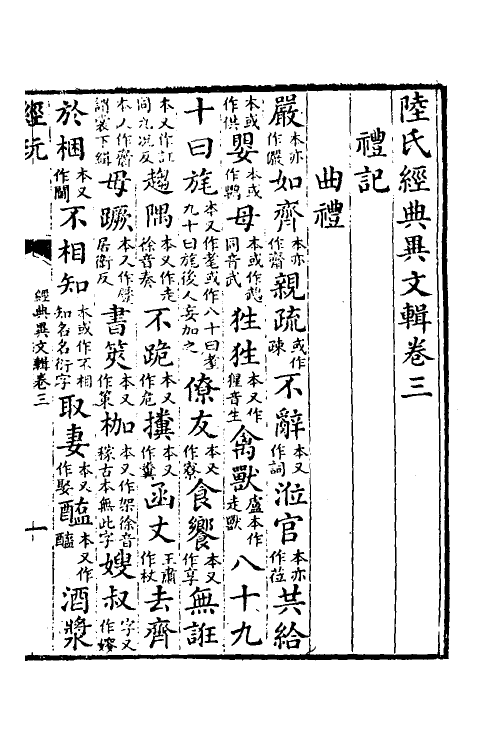 陸氏經典異文輯卷三
禮記
曲禮
嚴本亦作儼如齊本亦作齋親疏或作疎不辭本又作詞涖官本亦作莅共給
本或作供嬰本或作鸚母本或作䳇同音武狌狌本又作猩音生禽獸盧本作走獸八十九
十曰旄本又作耄或作八十曰耋九十曰旄後人妄加之僚友本又作寮食饗本又作享無誑
本又作𧥶同九况反趨隅本又作走徐音奏不跪本又作危攩本又作糞函丈王肅作杖去齊
本又作齋謂裳下緝毋蹶本又作㒤居衛反書筴本又作策枷本又作架徐音稼古本無此字嫂叔字又作㛮
於梱本又作閫不相知本或作不相知名名衍字取妻本又作娶醯本又作醢酒漿
經玩
經典異文輯卷三
十